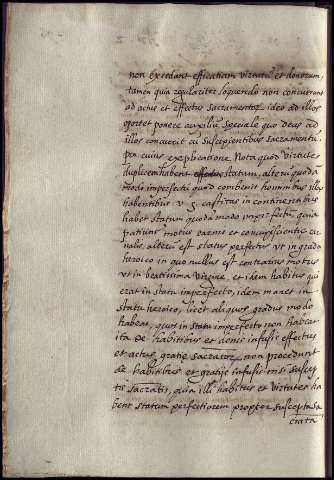 non excedant efficatiam virtutũ et donorum,
tamen quia regulariter loquendo non concurrant
ad actus et effectus sacramentor. ideo ad illos
oportet ponere auxiliũ speciale quo deus ad
illos concurrit cũ suscipientibus sacramentũ.
pro cuius explicatione. Nota quod virtutes
duplicem habent statum, alterũ quodã
modo imperfectũ quod combenit hominibus illas
habentibus v. g. castitas in continentibus
habet statum quodã modo imperfectũ, quia
patiunt motus carnis et concupiscentie cu
nales, alterũ est status perfectus vt in gradu
heroico in quo nullus est contrarius motus
vt in beatissima Virgine, et idem habitus qui
erat in statu imperfecto, idem manet in
statu heroico, licet aliquos gradus modo
habeat, quos in statu imperfecto non habebat
ita de habitibus et donis infusis effectus
et actus gratię sacrator. non procedunt
de habitibus et gratię infusis nisi suscep
tis sacratis, quia illi habitus et virtutes ha
bent statum perfectiorem propter suscepta sa
crata